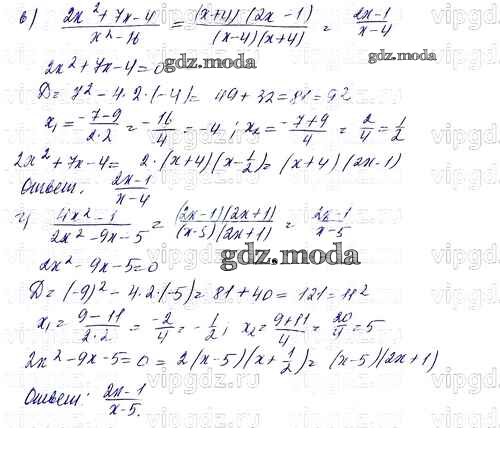 в) (2x²+7x-4)/(x²-16) = ((x+4)(2x-1))/((x-4)(x+4)) = (2x-1)/(x-4)
2x²+7x-4=0
D=7²-4·2·(-4)=49+32=81=9²
x₁=(-7-9)/(2·2)=-16/4=-4; x₂=(-7+9)/4=2/4=1/2
2x²+7x-4=2·(x+4)(x-1/2)=(x+4)(2x-1)
Ответ: (2x-1)/(x-4)
г) (4x²-1)/(2x²-9x-5) = ((2x-1)(2x+1))/((x-5)(2x+1)) = (2x-1)/(x-5)
2x²-9x-5=0
D=(-9)²-4·2·(-5)=81+40=121=11²
x₁=(9-11)/(2·2)=-2/4=-1/2; x₂=(9+11)/4=20/4=5
2x²-9x-5=0=2(x-5)(x+1/2)=(x-5)(2x+1)
Ответ: (2x-1)/(x-5).
gdz.moda
gdz.moda
vipgdz